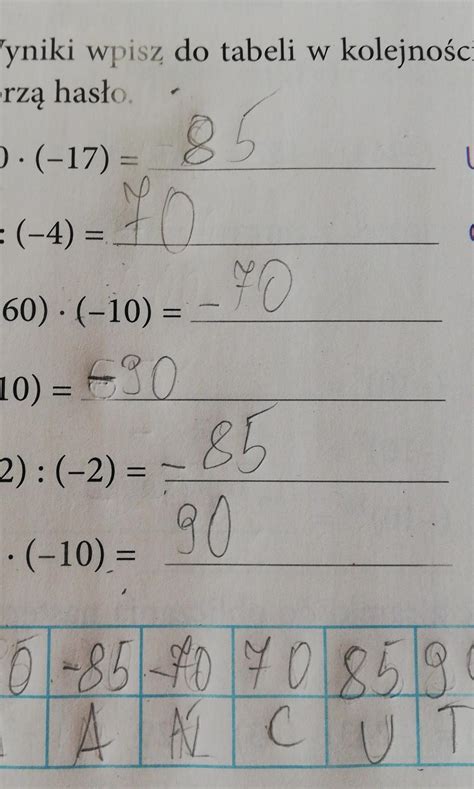 yniki wpisz do tabeli w kolejności
rzą hasło.
0 · (–17) = 85
: (–4) = 70
60) · (–10) = –70
10) = –90
2) : (–2) = –85
· (–10) = 90
0 –85 –70 70 85 9
A N C U T